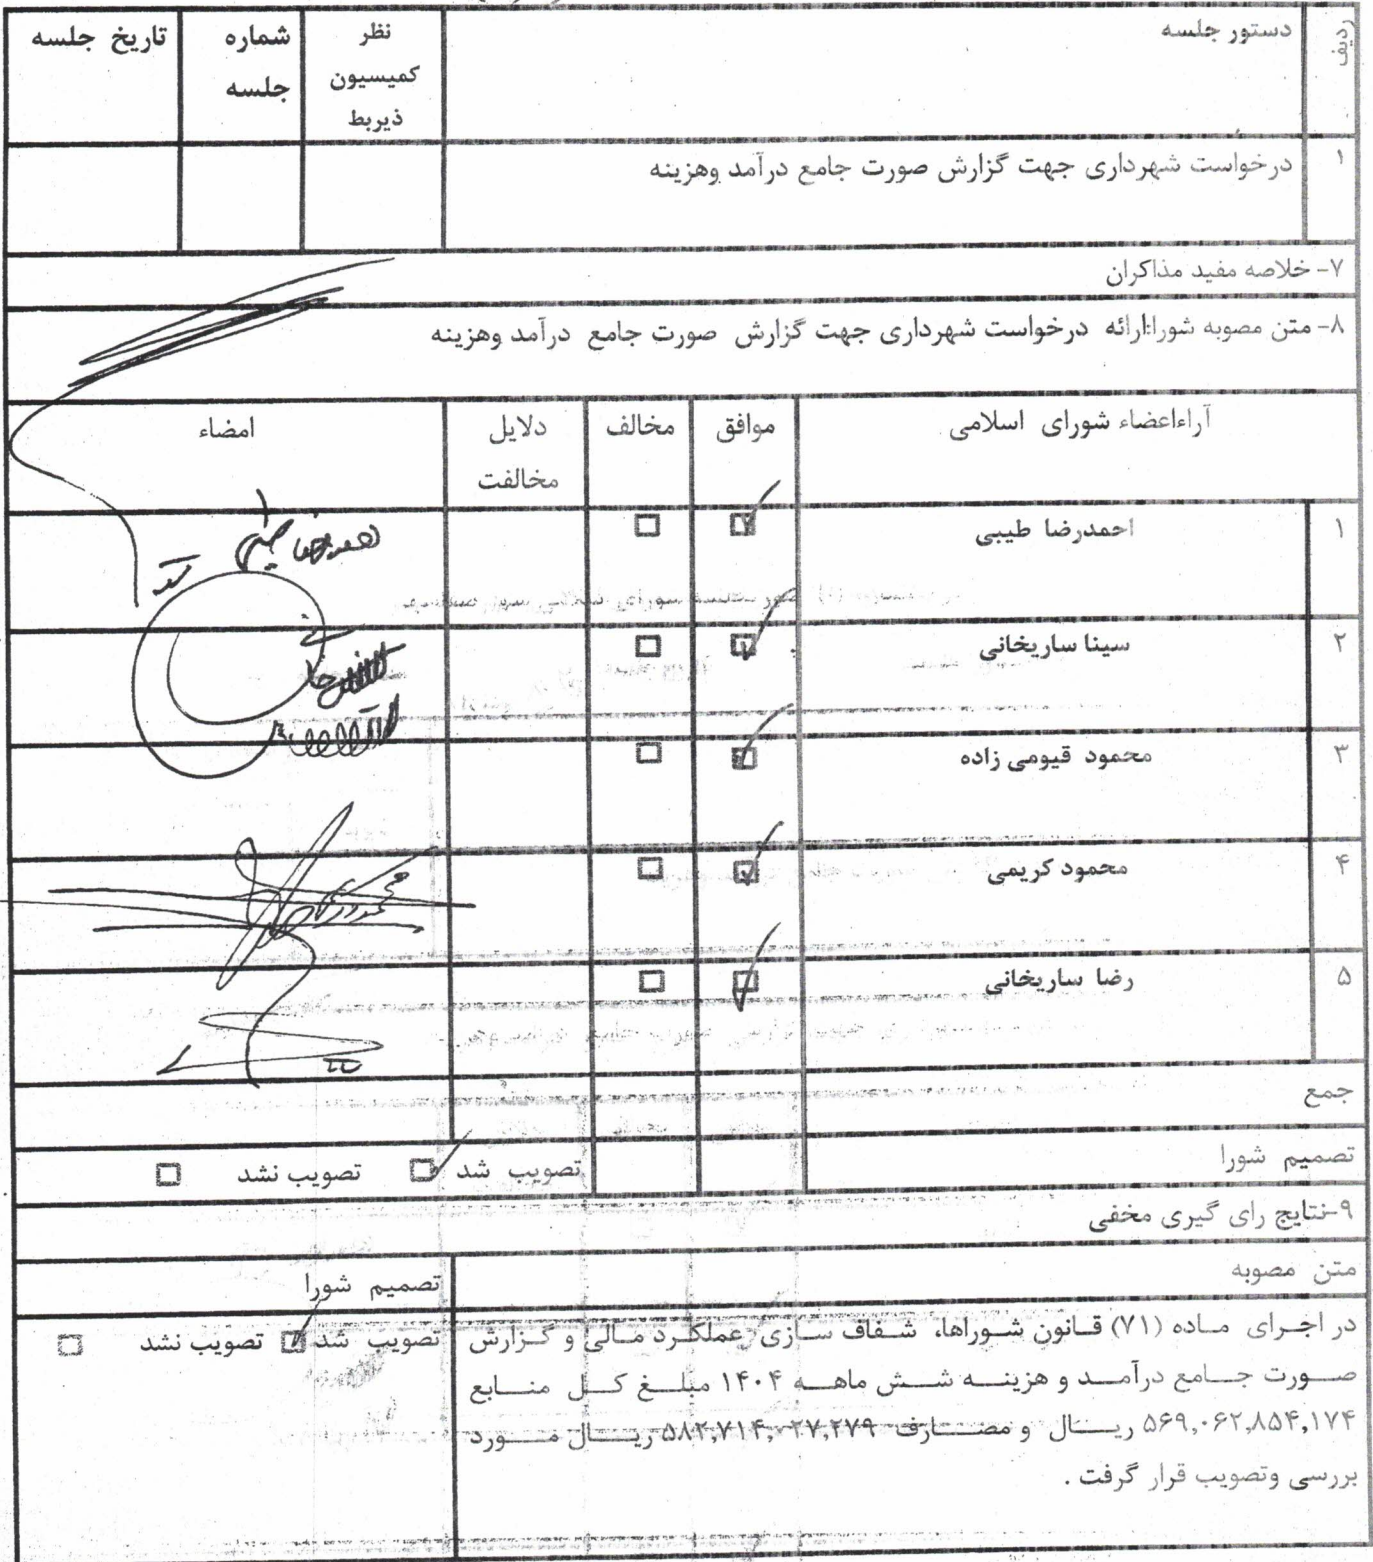 ردیف
دستور جلسه
نظر کمیسیون ذیربط
شماره جلسه
تاریخ جلسه
۱
درخواست شهرداری جهت گزارش صورت جامع درآمد وهزینه
۷- خلاصه مفید مذاکران
۸- متن مصوبه شورا:ارائه درخواست شهرداری جهت گزارش صورت جامع درآمد وهزینه
آراءاعضاء شورای اسلامی
موافق
مخالف
دلایل مخالفت
امضاء
۱
احمدرضا طیبی
۲
سینا ساریخانی
۳
محمود قیومی زاده
۴
محمود کریمی
۵
رضا ساریخانی
جمع
تصمیم شورا
تصویب شد
تصویب نشد
۹-نتایج رای گیری مخفی
متن مصوبه
تصمیم شورا
در اجرای ماده (۷۱) قانون شوراها، شفاف سازی عملکرد مالی و گزارش
صورت جامع درآمد و هزینه شش ماهه ۱۴۰۴ مبلغ کل منابع
۵۶۹,۰۶۲,۸۵۴,۱۷۴ ریال و مصارف ۵۸۲,۷۱۴,۰۲۷,۲۷۹ ریال مورد
بررسی وتصویب قرار گرفت .
تصویب شد
تصویب نشد